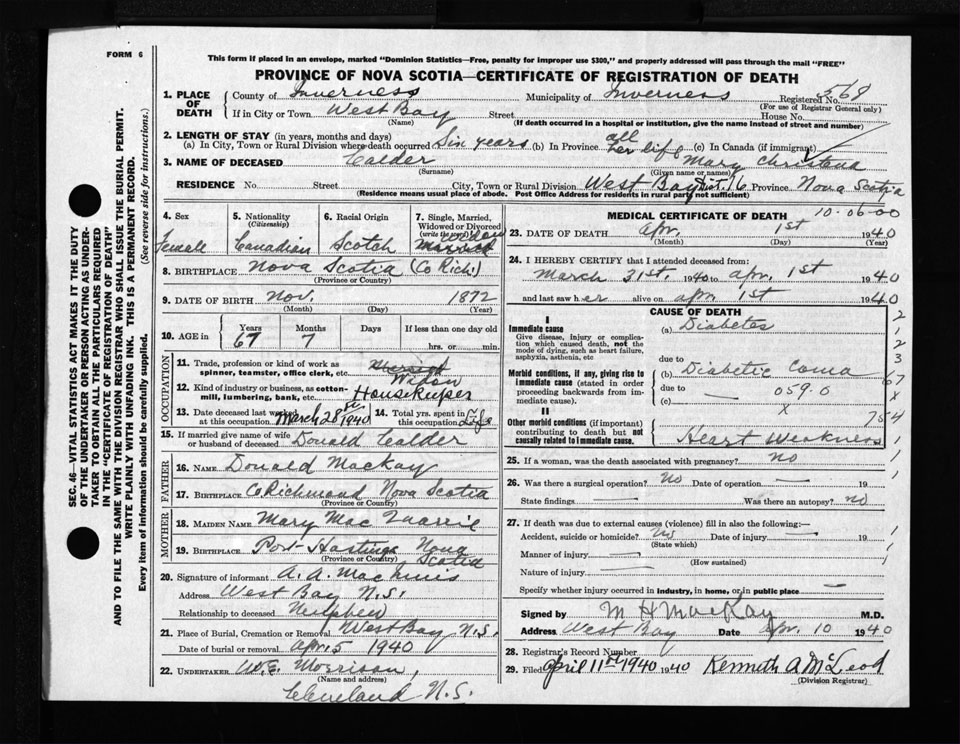 FORM 6
This form if placed in an envelope, marked "Dominion Statistics—Free, penalty for improper use $300," and properly addressed will pass through the mail "FREE"
PROVINCE OF NOVA SCOTIA—CERTIFICATE OF REGISTRATION OF DEATH
SEC. 46—VITAL STATISTICS ACT MAKES IT THE DUTY
OF THE UNDERTAKER OR PERSON ACTING AS UNDER-
TAKER TO OBTAIN ALL THE PARTICULARS REQUIRED
IN THE "CERTIFICATE OF REGISTRATION OF DEATH"
AND TO FILE THE SAME WITH THE DIVISION REGISTRAR WHO SHALL ISSUE THE BURIAL PERMIT.
WRITE PLAINLY WITH UNFADING INK. THIS IS A PERMANENT RECORD.
Every item of information should be carefully supplied. (See reverse side for instructions.)
1. PLACE OF DEATH County of Inverness Municipality of Inverness Registered No. 568
(For use of Registrar General only)
If in City or Town West Bay Street House No.
(Name) (If death occurred in a hospital or institution, give the name instead of street and number)
2. LENGTH OF STAY (in years, months and days)
(a) In City, Town or Rural Division where death occurred Six years (b) In Province all her life (c) In Canada (if immigrant)
3. NAME OF DECEASED Calder Mary Christena
(Surname) (Given name or names)
RESIDENCE No. Street City, Town or Rural Division West Bay Dist. 16 Province Nova Scotia
(Residence means usual place of abode. Post Office Address for residents in rural parts not sufficient)
4. Sex Female
5. Nationality (Citizenship) Canadian
6. Racial Origin Scotch
7. Single, Married, Widowed or Divorced (write the word) Widow
8. BIRTHPLACE Nova Scotia (Co Rich.)
(Province or Country)
9. DATE OF BIRTH Nov. 1872
(Month) (Day) (Year)
10. AGE IN Years 67 Months 7 Days If less than one day old hrs. or min.
OCCUPATION
11. Trade, profession or kind of work as spinner, teamster, office clerk, etc. Widow
12. Kind of industry or business, as cotton-mill, lumbering, bank, etc. Housekeeper
13. Date deceased last worked at this occupation March 28 1940
14. Total yrs. spent in this occupation Life
15. If married give name of wife or husband of deceased Donald Calder
FATHER
16. NAME Donald MacKay
17. BIRTHPLACE Co Richmond Nova Scotia
(Province or Country)
MOTHER
18. MAIDEN NAME Mary Mac Quarrie
19. BIRTHPLACE Port Hastings Nova Scotia
(Province or Country)
20. Signature of informant A. A. MacInnis
Address West Bay N.S.
Relationship to deceased Nephew
21. Place of Burial, Cremation or Removal West Bay N.S.
Date of burial or removal Apr. 5 1940
22. UNDERTAKER W.E. Morrison,
(Name and address)
Cleveland N.S.
MEDICAL CERTIFICATE OF DEATH 10-06-00
23. DATE OF DEATH Apr. 1st 1940
(Month) (Day) (Year)
24. I HEREBY CERTIFY that I attended deceased from:
March 31st. 1940 to Apr. 1st 1940
and last saw her alive on Apr 1st 1940
CAUSE OF DEATH
I
Immediate cause
Give disease, injury or complication which caused death, not the mode of dying, such as heart failure, asphyxia, asthenia, etc
(a) Diabetes
due to
Morbid conditions, if any, giving rise to immediate cause (stated in order proceeding backwards from immediate cause).
(b) Diabetic Coma
due to 059.0
(c) x
II
Other morbid conditions (if important) contributing to death but not causally related to immediate cause.
Heart Weakness
2
1
2
3
67
x
754
1
1
25. If a woman, was the death associated with pregnancy? no
26. Was there a surgical operation? No Date of operation — 19
State findings — Was there an autopsy? no
27. If death was due to external causes (violence) fill in also the following:—
Accident, suicide or homicide? No Date of injury — 19
(State which)
Manner of injury —
(How sustained)
Nature of injury —
Specify whether injury occurred in industry, in home, or in public place —
Signed by M H MacKay M.D.
Address West Bay Date Apr. 10 1940
28. Registrar's Record Number
29. Filed April 11th 1940 1940 Kenneth A McLeod
(Division Registrar)